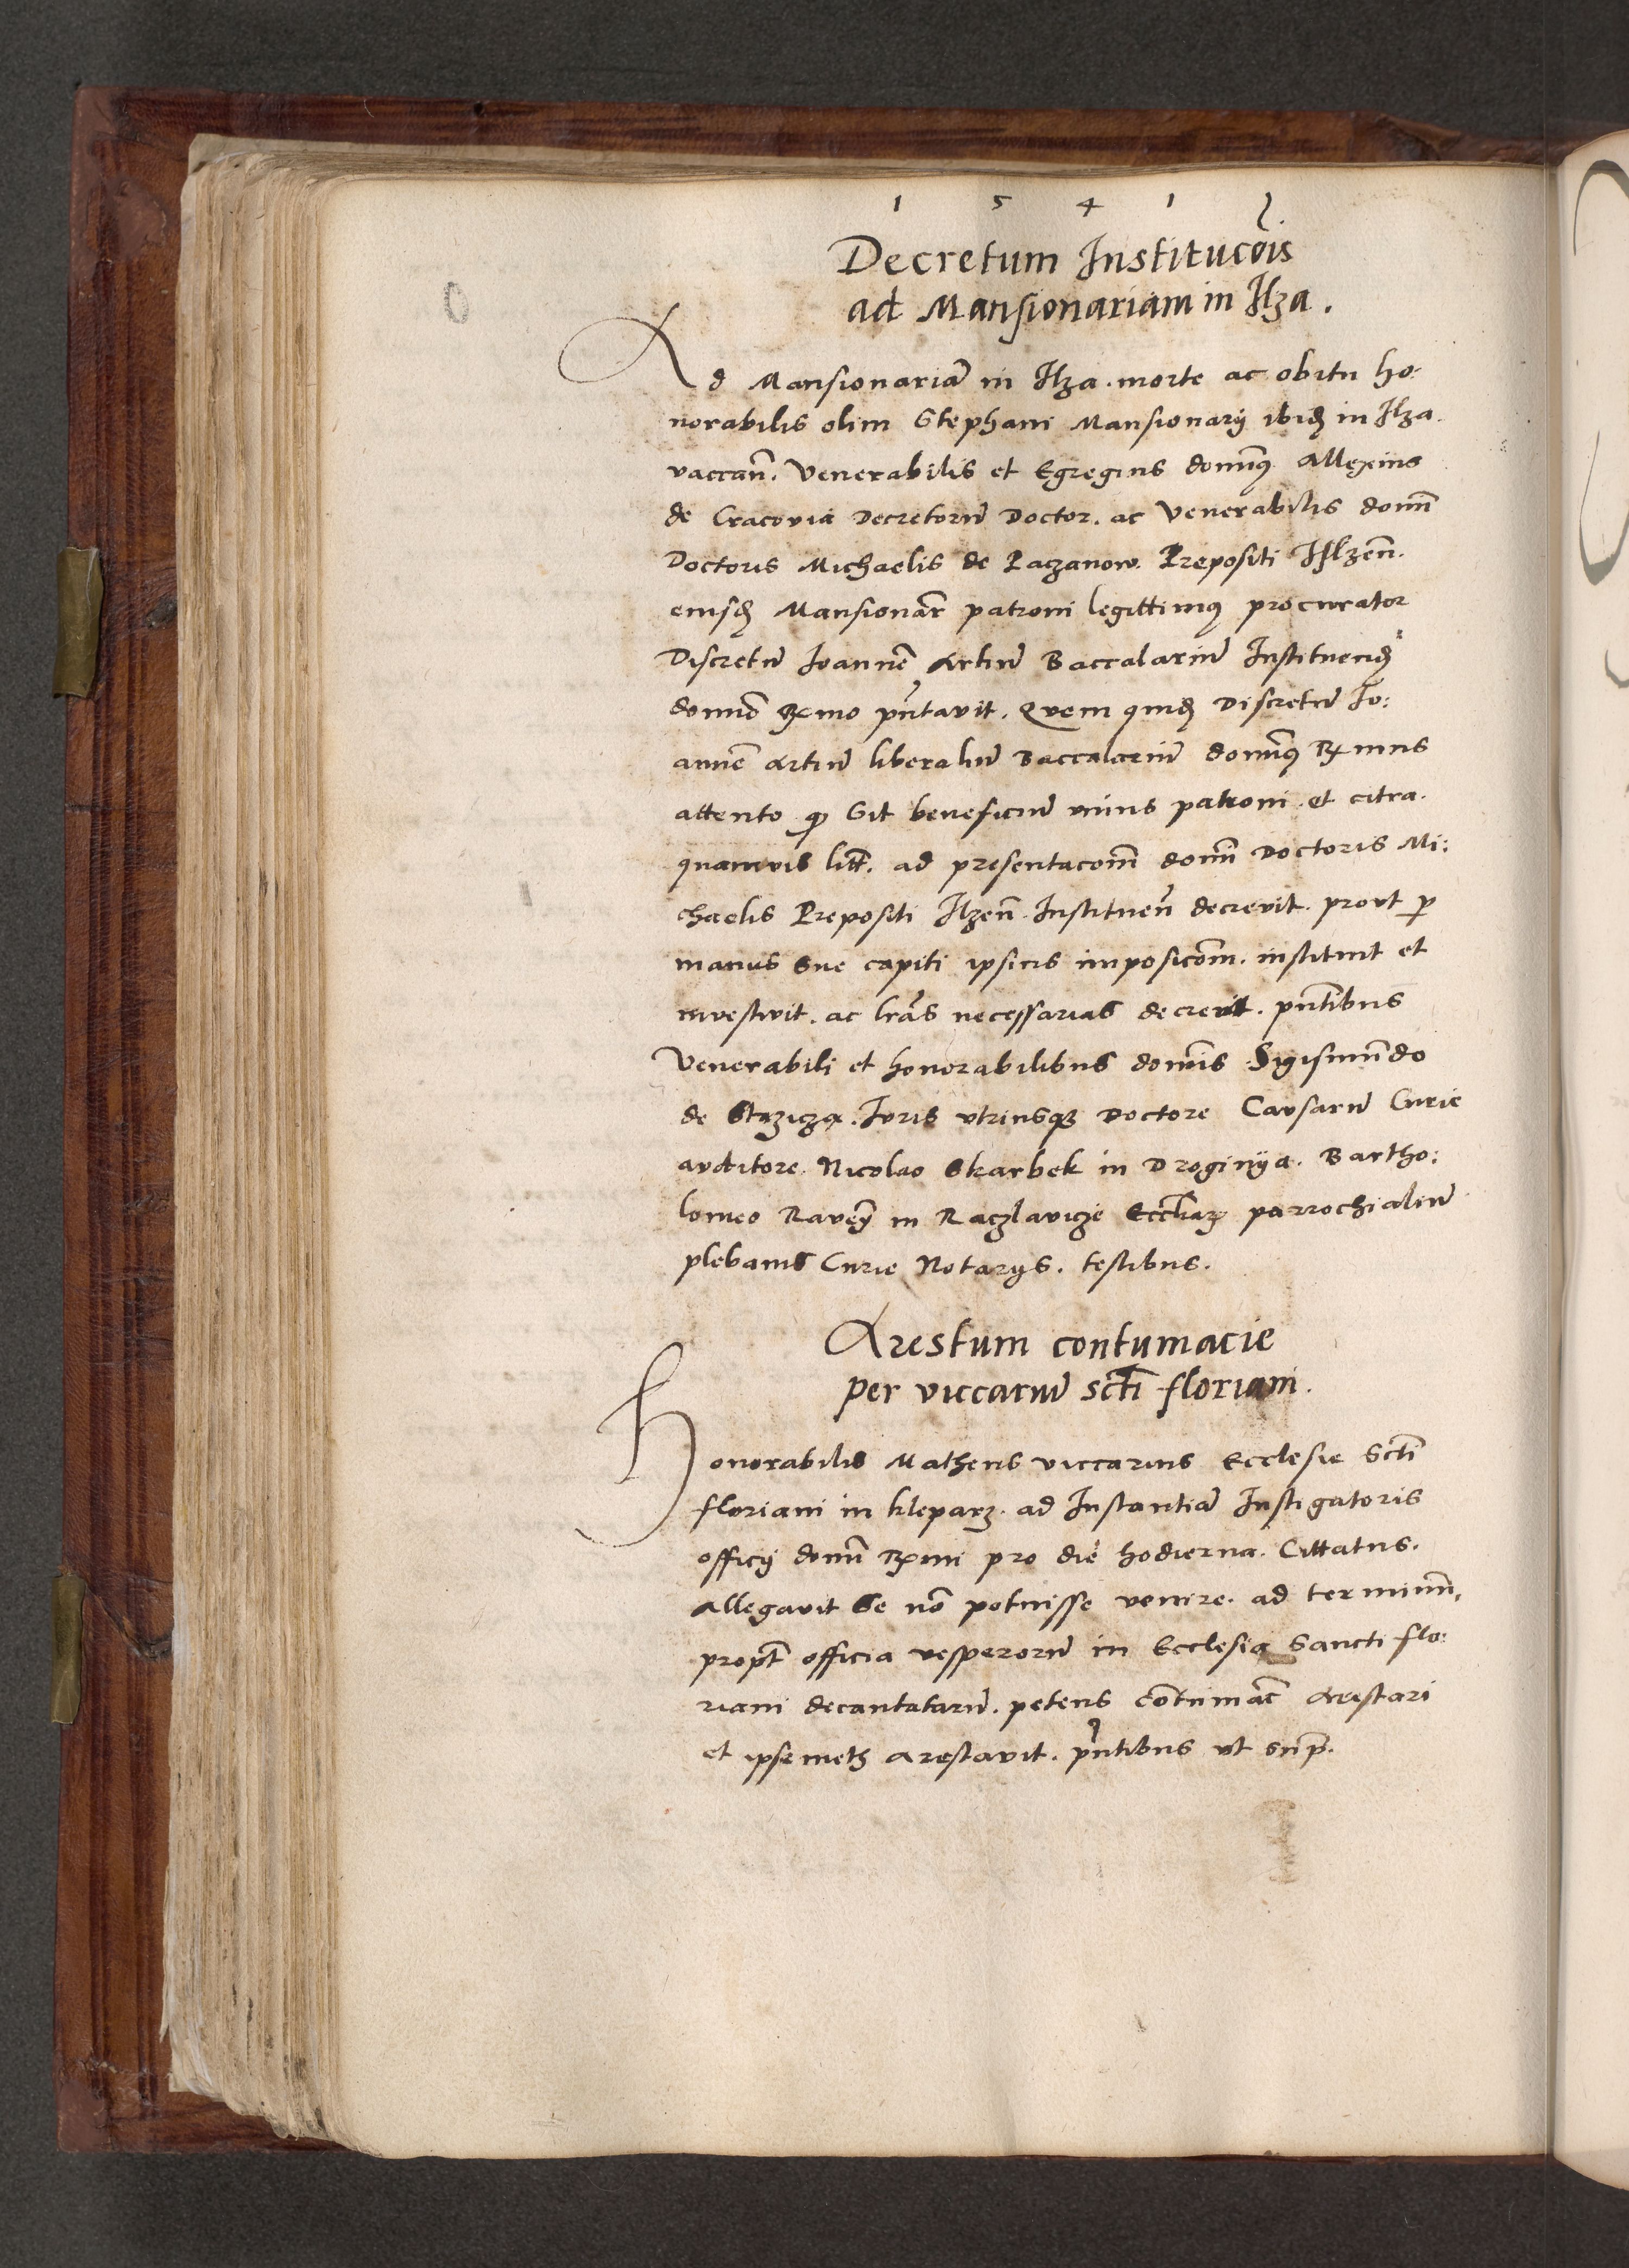 1 5 4 1
Decretum Institucõis
ad Mansionariam in Ilza.
Ad Mansionariã in Ilza. morte ac obitu ho:
norabilis olim Stephani Mansionarij ibid in Ilza.
vaccañ. Venerabilis et Egregius domin9 Allexius
de Cracovia Decretorũ Doctor. ac Venerabilis domĩ
Doctoris Michaelis de Paczanow. Prepositi Ilzeñ.
eiusd Mansionar̃ patroni legittim9 procurator
Discretũ Ioannẽ Artiũ Baccalariũ Instituend
domĩo Rmo pñtavit. Quem quid Discretũ Io:
annẽ Artiũ liberaliũ Baccalariũ domin9 Rmus
attento q Sit beneficiũ unius patroni. et citra.
quamvis litt̃. ad presentacom̃ domĩ Doctoris Mi:
chaelis Prepositi Ilzeñ. Instituen̄ decrevit. prout p
manus sue capiti ipsius imposicom̃. instituit et
investivit. ac lrãs necessarias decrevit. pñtibus
Venerabili et honorabilibus domĩs Sigismundo
de Stezicza. Iuris utriusq3 Doctore Causarũ Curie
auditore. Nicolao Skarbek in Droginya. Bartho:
lomeo in Raczlavicze parrochialiũ
plebanis Curie Notarijs. testibus.
Arestum contumacie
per viccariũ scti floriani.
Honorabilis Matheus viccarius Ecclesie Scti
floriani in kleparz. ad Instantiã Instigatoris
officij domĩ Rmi pro die hodierna. Cittatus.
Allegavit Se nõ potuisse venire. ad terminũ,
propt̃ officia vesperorũ in Ecclesia Sancti flo:
riani decantatarũ. petens contumac̃ Arestari
et ipsemeth arestavit. pñtibus ut supr̃.